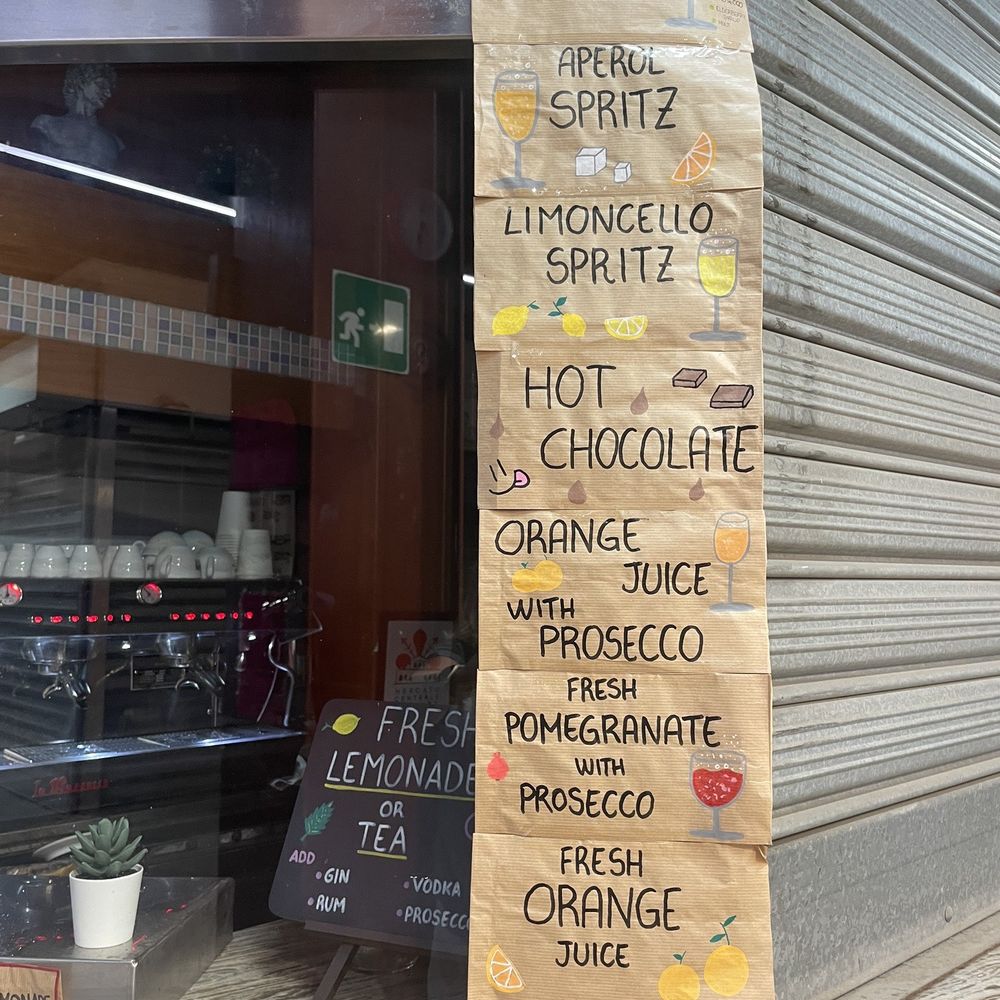 APEROL
SPRITZ
LIMONCELLO
SPRITZ
HOT
CHOCOLATE
ORANGE
JUICE
WITH
PROSECCO
FRESH
POMEGRANATE
WITH
PROSECCO
FRESH
ORANGE
JUICE
FRESH
LEMONADE
OR
TEA
ADD
• GIN
• VODKA
• RUM
• PROSECCO